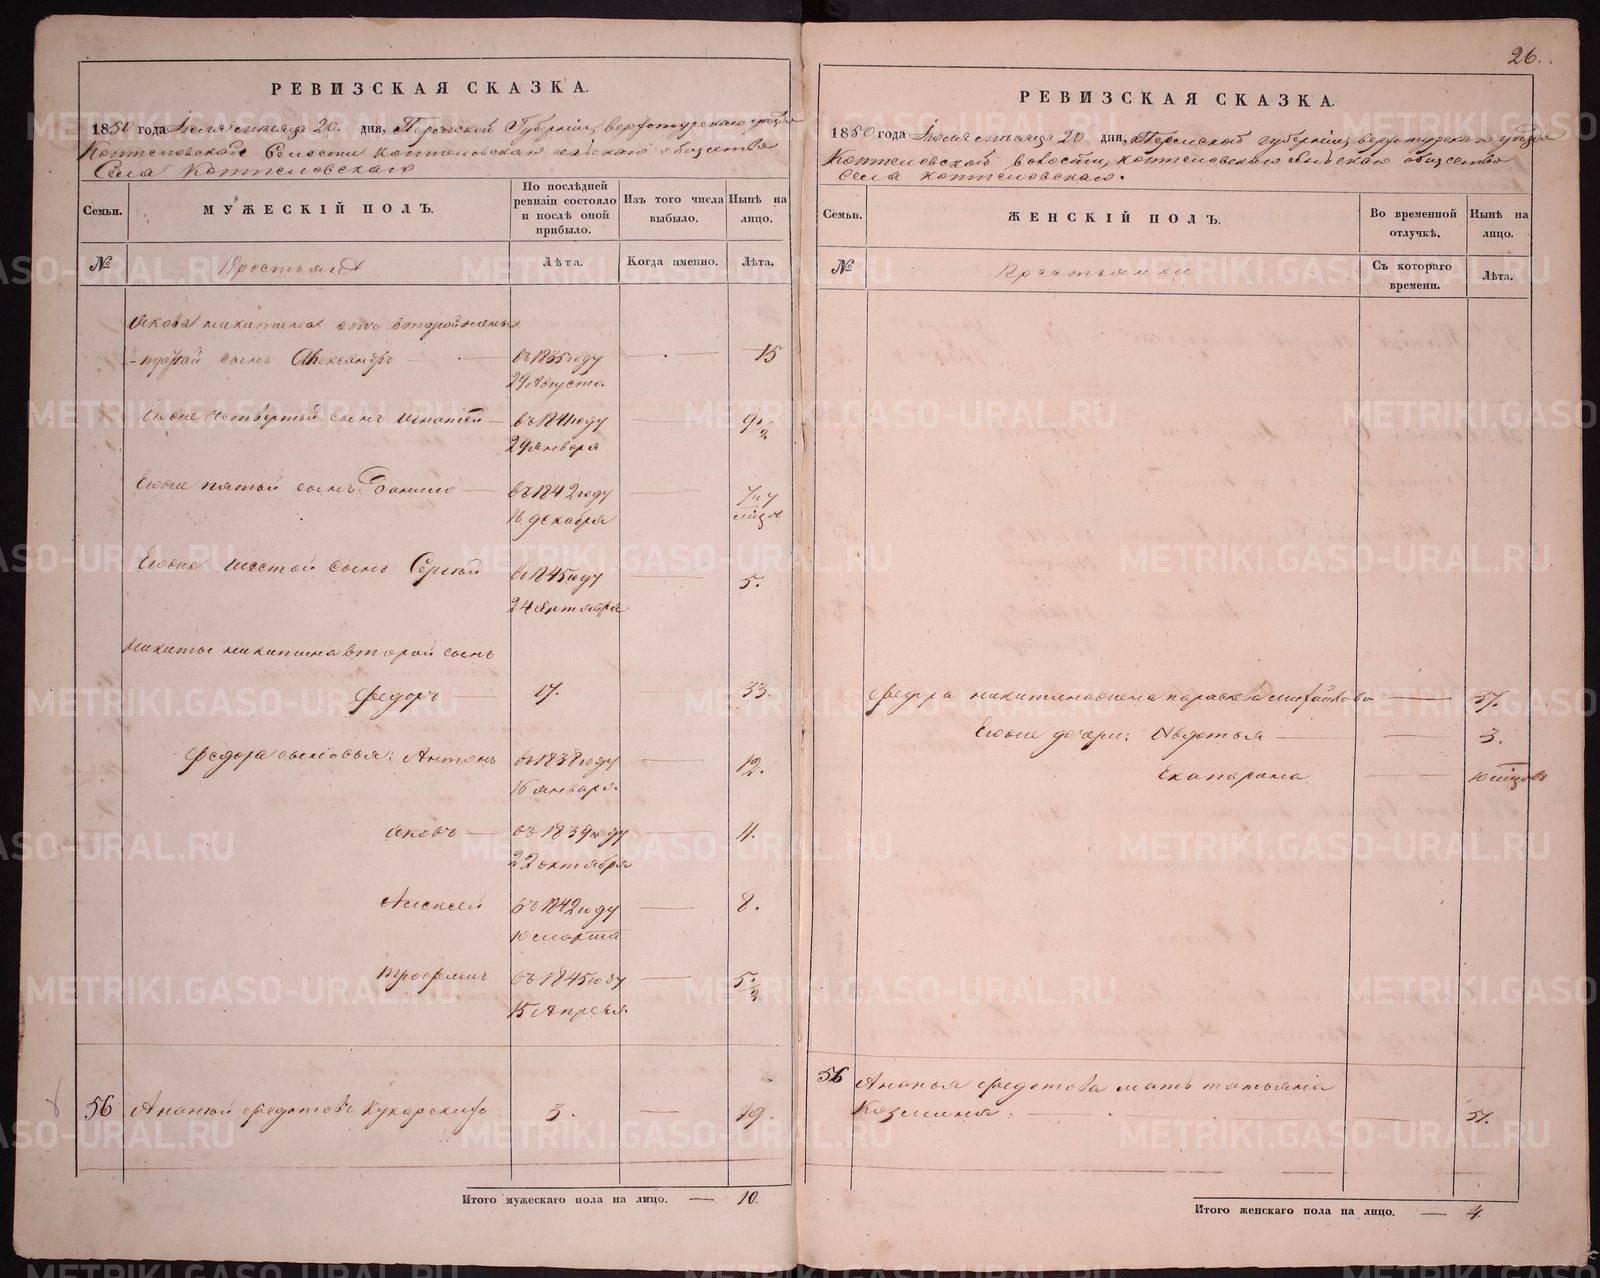 26.
РЕВИЗСКАЯ СКАЗКА.
1850 года Июля месяца 20. дня, Пермской Губернiи, верхотурскаго уезда
Коптеловской Волости коптеловскаго сельскаго общества
Села Коптеловскаго
Семьи.
МУЖЕСКІЙ ПОЛЪ.
По послѣдней ревизіи состояло и послѣ оной прибыло.
Изъ того числа выбыло.
Нынѣ на лицо.
№
Крестьяне
Лѣта.
Когда именно.
Лѣта.
Якова никитина отъ второй жены
третiй сынъ Александръ — въ 1835 году — 15
29 Августа
Ево же четвертый сынъ Игнатей — въ 1841 году — 9 1/2
29 января
Ево же пятой сынъ Данило — въ 1842 году — 7 и 7
16 декабря мѣсяцов
Ево же шестой сынъ Сергей въ 1845 году — 5.
24 сентября
Никиты никитина второй сынъ
Федоръ — 17. 33.
Федора сыновья: Антонъ въ 1838 году — 12.
16 января.
Яковъ — въ 1839 году — 11.
22 октября
Алексей въ 1842 году — 8.
10 марта
Трофимъ въ 1845 году — 5 1/2
15 Апреля.
56 Ананiй федотовъ Кукарскихъ 3. — 19.
Итого мужескаго пола на лицо. — 10.
РЕВИЗСКАЯ СКАЗКА.
1850 года Июля месяца 20 дня, Пермской губернiи, верхотурскаго уезда
Коптеловской волости, коптеловскаго сельскаго общества
села коптеловскаго.
Семьи.
ЖЕНСКІЙ ПОЛЪ.
Во временной отлучкѣ.
Нынѣ на лицо.
№
Крестьянки
Съ котораго времени.
Лѣта.
Федора никитина жена параскева — 37.
Ево же дочери: Авдотья — 3.
Екатерина — 10 мѣсяцовъ
56 Ананья федотова мать татьяна
Козмина. — 51.
Итого женскаго пола на лицо. — 4.
METRIKI.GASO-URAL.RU